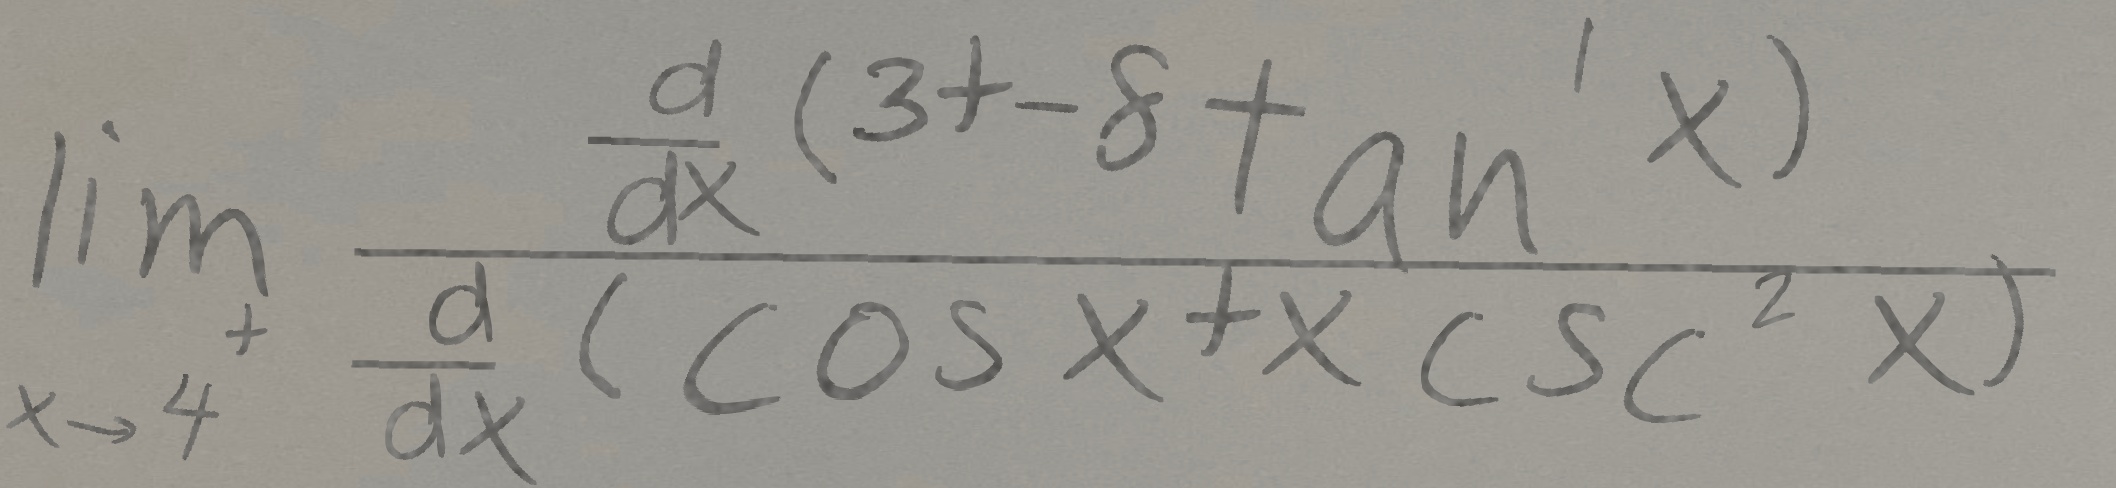 \lim_{x \to 4^+} \frac{\frac{d}{dx}(3+-8\tan^{1}x)}{\frac{d}{dx}(\cos x+x\csc^2 x)}